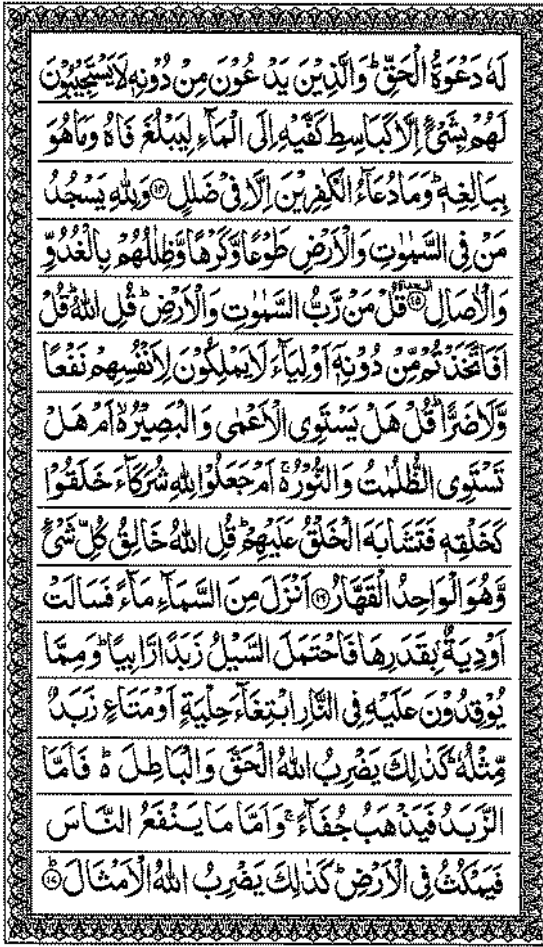 لَهٗ دَعْوَةُ الْحَقِّ ؕ وَالَّذِیْنَ یَدْعُوْنَ مِنْ دُوْنِهٖ لَا یَسْتَجِیْبُوْنَ
لَهُمْ بِشَیْءٍ اِلَّا كَبَاسِطِ كَفَّیْهِ اِلَی الْمَآءِ لِیَبْلُغَ فَاهُ وَمَا هُوَ
بِبَالِغِهٖ ؕ وَمَا دُعَآءُ الْكٰفِرِیْنَ اِلَّا فِیْ ضَلٰلٍ ۝۱۴ وَلِلّٰهِ یَسْجُدُ
مَنْ فِی السَّمٰوٰتِ وَالْاَرْضِ طَوْعًا وَّكَرْهًا وَّظِلٰلُهُمْ بِالْغُدُوِّ
وَالْاٰصَالِ ۝۱۵ السجدة قُلْ مَنْ رَّبُّ السَّمٰوٰتِ وَالْاَرْضِ ؕ قُلِ اللّٰهُ ؕ قُلْ
اَفَاتَّخَذْتُمْ مِّنْ دُوْنِهٖۤ اَوْلِیَآءَ لَا یَمْلِكُوْنَ لِاَنْفُسِهِمْ نَفْعًا
وَّلَا ضَرًّا ؕ قُلْ هَلْ یَسْتَوِی الْاَعْمٰی وَالْبَصِیْرُ ۙ اَمْ هَلْ
تَسْتَوِی الظُّلُمٰتُ وَالنُّوْرُ ۚ اَمْ جَعَلُوْا لِلّٰهِ شُرَكَآءَ خَلَقُوْا
كَخَلْقِهٖ فَتَشَابَهَ الْخَلْقُ عَلَیْهِمْ ؕ قُلِ اللّٰهُ خَالِقُ كُلِّ شَیْءٍ
وَّهُوَ الْوَاحِدُ الْقَهَّارُ ۝۱۶ اَنْزَلَ مِنَ السَّمَآءِ مَآءً فَسَالَتْ
اَوْدِیَةٌۢ بِقَدَرِهَا فَاحْتَمَلَ السَّیْلُ زَبَدًا رَّابِیًا ؕ وَمِمَّا
یُوْقِدُوْنَ عَلَیْهِ فِی النَّارِ ابْتِغَآءَ حِلْیَةٍ اَوْ مَتَاعٍ زَبَدٌ
مِّثْلُهٗ ؕ كَذٰلِكَ یَضْرِبُ اللّٰهُ الْحَقَّ وَالْبَاطِلَ ؕ فَاَمَّا
الزَّبَدُ فَیَذْهَبُ جُفَآءً ۚ وَاَمَّا مَا یَنْفَعُ النَّاسَ
فَیَمْكُثُ فِی الْاَرْضِ ؕ كَذٰلِكَ یَضْرِبُ اللّٰهُ الْاَمْثَالَ ؕ ۝۱۷